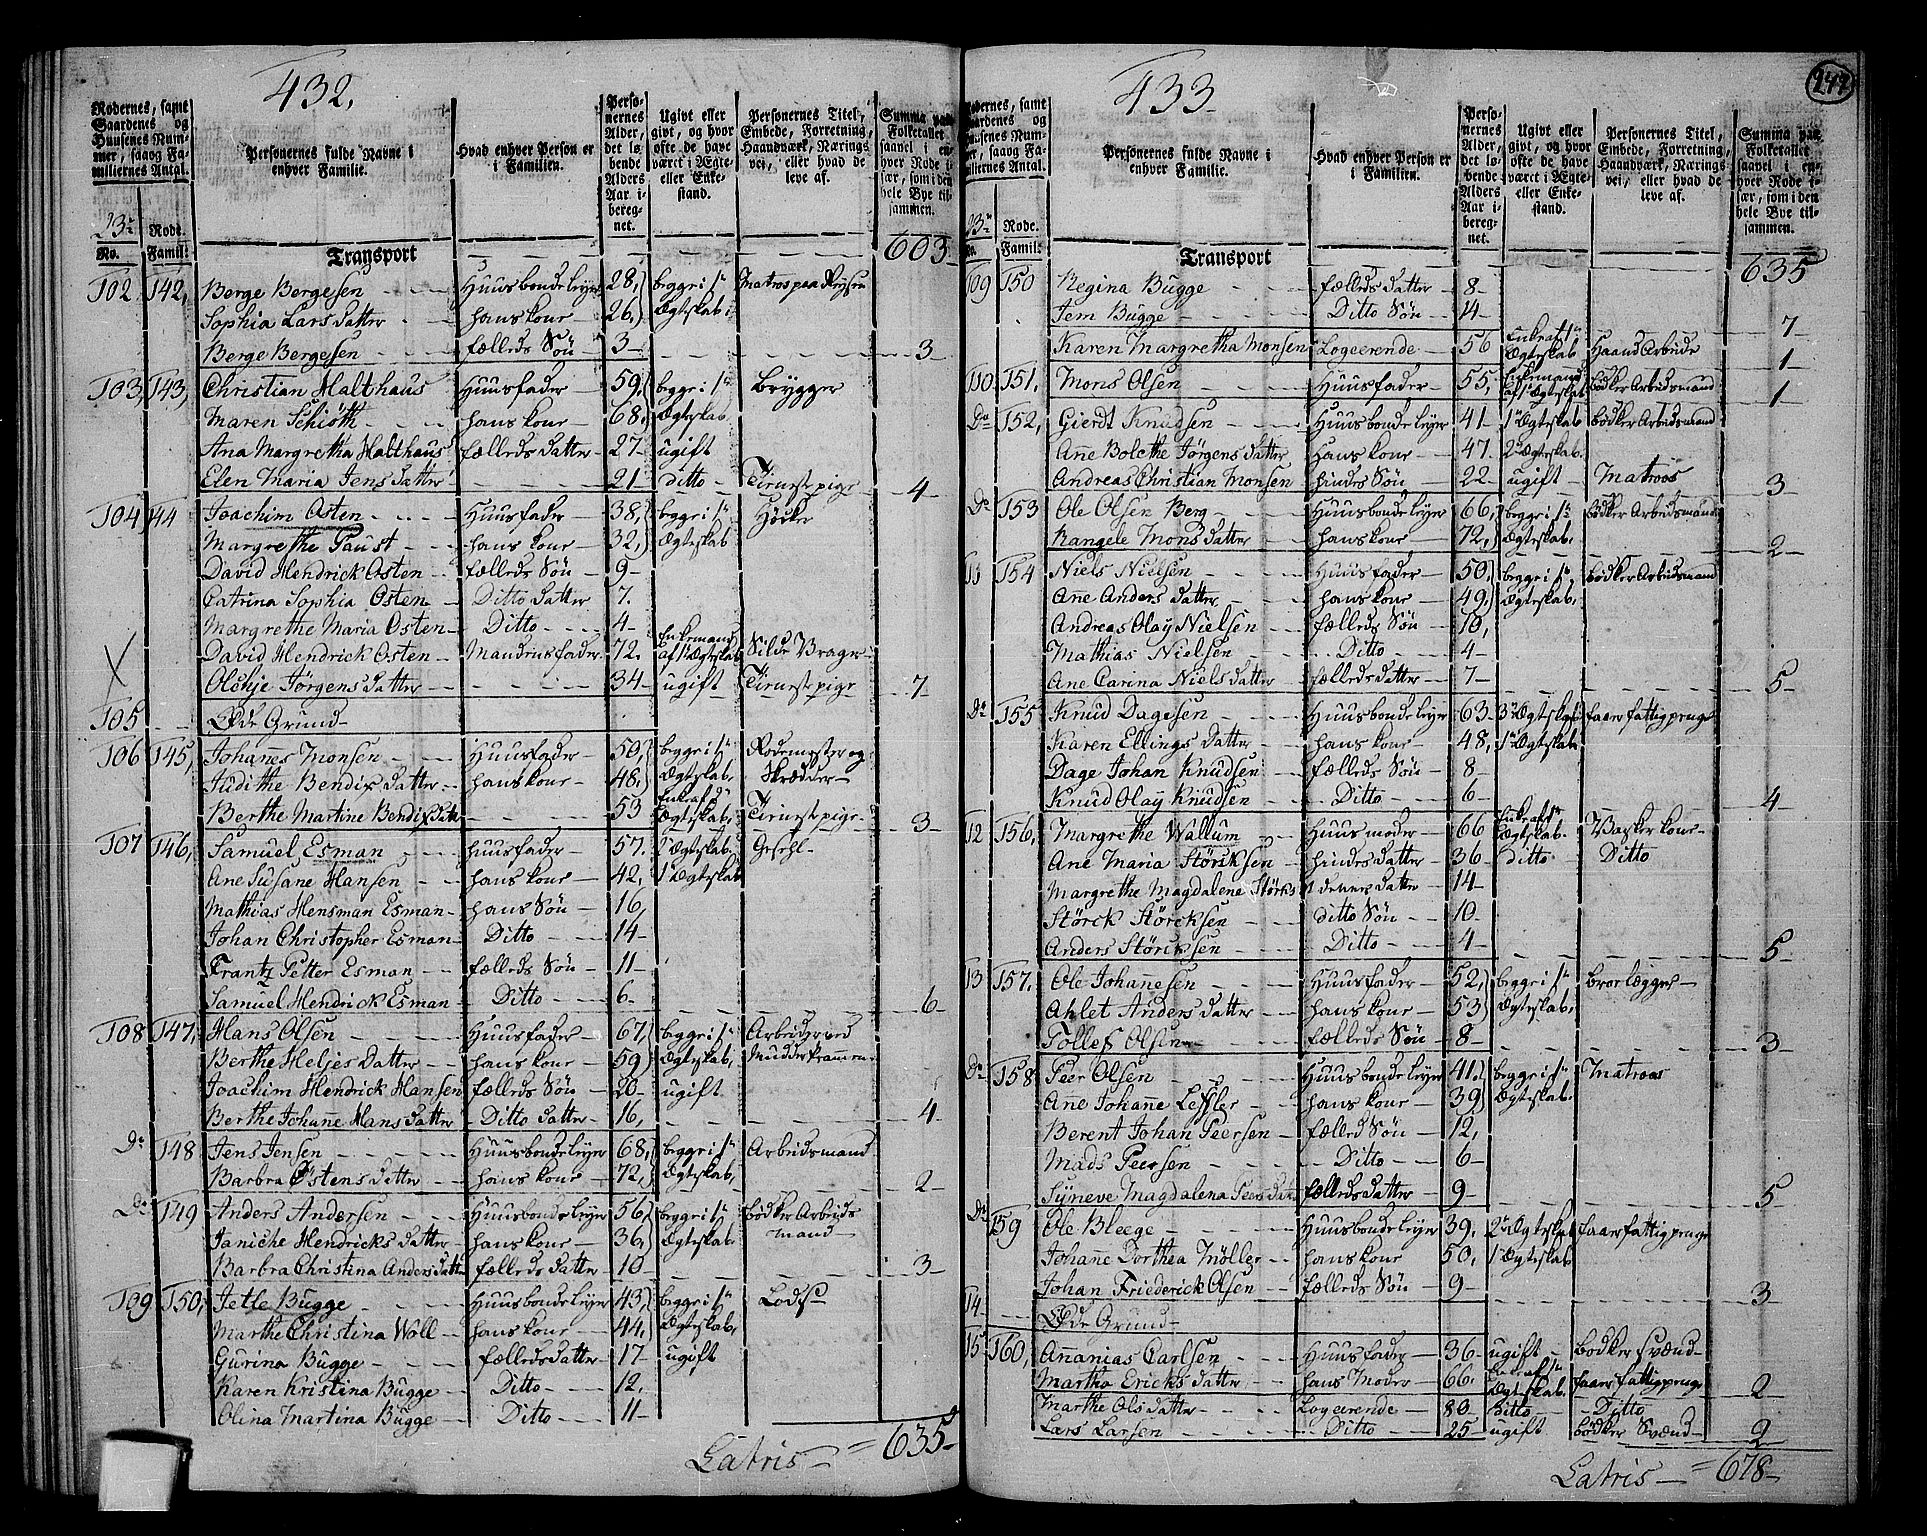 432.
Rodernes, samt Gaardenes og Huusenes Nummer, saavg Familiernes Antal.
Personernes fulde Navne i enhver Familie.
Hvad enhver Person er i Familien.
Personernes Alder, det løbende Alders Aar iberegnet.
Ugivt eller givt, og hvor ofte de have været i Ægte- eller Enkestand.
Personernes Titel, Embede, Forretning, Haandværk, Næringsvei, eller hvad de leve af.
Summa paa Folketallet saavel i enhver Rode især, som i den hele Bye tilsammen.
23de Rode.
No. Famil:
Transport 603
102 142, Berge Bergesen Huusbonde leyer 28, begge i 1te Matros paa Reyse
Sophia Lars datter hans kone 26, Ægteskab
Berge Bergesen fælleds Søn 3 3
103, 143, Christian Halthaus Huusfader 59, begge i 1te Brygger
Maren Schiøth hans kone 68, Ægteskab
Ana Margretha Halthaus fælleds datter 27 ugift
Elen Maria Jens datter 21 ditto Tienestpige 4
104, 144 Joachim Osten Huusfader 38, begge i 1te Høcker
Margrethe Faust hans kone 32, Ægteskab
David Hendrick Osten fælleds Søn 9
Catrina Sophia Osten Ditto datter 7.
Margrethe Maria Osten Ditto 4
David Hendrick Osten Mandens fader 72. Enkemand af 1te Ægteskab Silde Vrager
Olchje Jørgens datter 34 ugift Tienestpige 7
105 Øde Grund
106 145, Johannes Monsen Huusfader 50, begge i 1te Rodemester og
Judithe Bendix datter hans kone 48, Ægteskab. Skrædder
Berthe Martine Bendixdatr 53 Enke af 2de Ægteskab, Tienestpige 3
107 146, Samuel Esman huusfader 57. 2 Ægteskab. Gesehl
Ane Susane Hansen hans kone 42, 1te Ægteskab
Mathias Hensman Esman hans Søn 16,
Johan Christopher Esman Ditto 14
Frantz Petter Esman fælleds Søn 11
Samuel Hendrick Esman Ditto 6 6
108 147, Hans Olsen Huusfader 67, begge i 1te Arbeider ved
Berthe Heljes datter hans kone 59, Ægteskab, Mudder Pramene
Joachim Hendrick Hansen fælleds Søn 20 ugift
Berthe Johanne Hans datter Ditto datter 16, 4
Do 148 Jens Jensen Huusbonde leyer 68, begge i 1te Arbeidsmand
Barbra Østens datter hans kone 72, Ægteskab, 2
Do 149 Anders Andersen Huusbonde leyer 56, begge i 1te Bødker Arbeids
Janiche Hendricks datter hans kone 36, Ægteskab. mand
Barbra Christina Anders datter fælleds datter 10 3
109 150, Jetle Bugge Huusbonde leyer 43, begge i 1te Lods
Marthe Christina Woll hans kone 44, Ægteskab,
Gurina Bugge fælleds datter 17 ugift
Karen Kristina Bugge Ditto 12,
Olina Martina Bugge Ditto 11
Latris = 635
433
244
Rodernes, samt Gaardenes og Huusenes Nummer, saavg Familiernes Antal.
Personernes fulde Navne i enhver Familie.
Hvad enhver Person er i Familien.
Personernes Alder, det løbende Alders Aar iberegnet.
Ugivt eller givt, og hvor ofte de have været i Ægte- eller Enkestand.
Personernes Titel, Embede, Forretning, Haandværk, Næringsvei, eller hvad de leve af.
Summa paa Folketallet saavel i enhver Rode især, som i den hele Bye tilsammen.
23de Rode.
No. Famil:
Transport 635
109 150 Regina Bugge fælleds datter 8
Jem Bugge Ditto Søn 14 7
Karen Margretha Monsen Logeerende 56 Enke af 1te Ægteskab Haand Arbeide 1
110 151. Mons Olsen Huusfader 55, Enkemand af 1te Ægteskab Bødker Arbeidsmand 1
Do 152, Gierdt Knudsen Huusbonde leyer 41 1te Ægteskab Bødker Arbeidsmand
Ane Bolethe Jørgens datter hans kone 47. 2de Ægteskab.
Andreas Christian Monsen hindes Søn 22 ugift Matroos 3
Do 153 Ole Olsen Berg Huusbonde leyer 66, begge i 1te Bødker Arbeidsmand
Rangele Mons datter hans kone 72, Ægteskab, 2
11 154 Niels Nielsen Huusfader 50, begge i 1te Bødker Arbeidsmand
Ane Anders datter hans kone 49, Ægteskab,
Andreas Olay Nielsen fælleds Søn 10,
Mathias Nielsen Ditto 4
Ane Carina Niels datter fælleds datter 7 5
Do 155 Knud Dagesen Huusbonde leyer 63 3de Ægteskab faaer fattigpenge
Karen Ellings datter hans kone 48, 1te Ægteskab
Dage Johan Knudsen fælleds Søn 8
Knud Olay Knudsen Ditto 6 4
12 156, Margrethe Wallum Huusmoder 66 Enke af 1te Ægteskab. Vasker kone
Ane Maria Störcksen hindes datter 36 ditto Ditto
Margrethe Magdalene Störcks denne datter 14
Störck Störcksen ditto Søn 10
Anders Störcksen Ditto 4 5
13 157. Ole Johanesen Huusfader 52, begge i 1te Broelegger
Ahlet Anders datter hans kone 53 Ægteskab,
Tollef Olsen fælleds Søn 8 3
Do 158 Peer Olsen Huusbonde leyer 41, begge i 1te Matroos
Ane Johane Leffler hans kone 39 Ægteskab.
Berent Johan Peersen fælled Søn 12,
Mads Peersen Ditto 6
Syneve Magdalena Peersdatr fælleds datter 9 5
Do 159 Ole Bleege Huusbonde leyer 39, 2de Ægteskab faaer fattigpenge
Johane Dorthea Möller hans kone 50, 1te Ægteskab
Johan Friederick Olsen fælleds Søn 9 3
14 Øde Grund
15 160, Ananias Carlsen Huusfader 36 ugift Bødker Svænd
Martha Ericks datter hans Moder 66. Enke af 1te Ægteskab. faaer fattigpenge 2
Marthe Ols datter Logeerende 80 ditto Ditto
Lars Larsen Ditto 25 ugift Bødker Svænd 2
Latris = 678